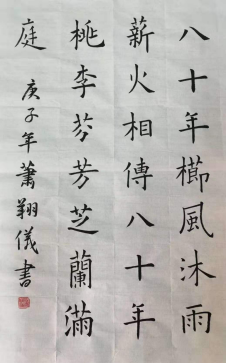 八十年櫛風沐雨
薪火相傳八十年
桃李芬芳芝蘭滿
庭 庚子年蕭翔儀書